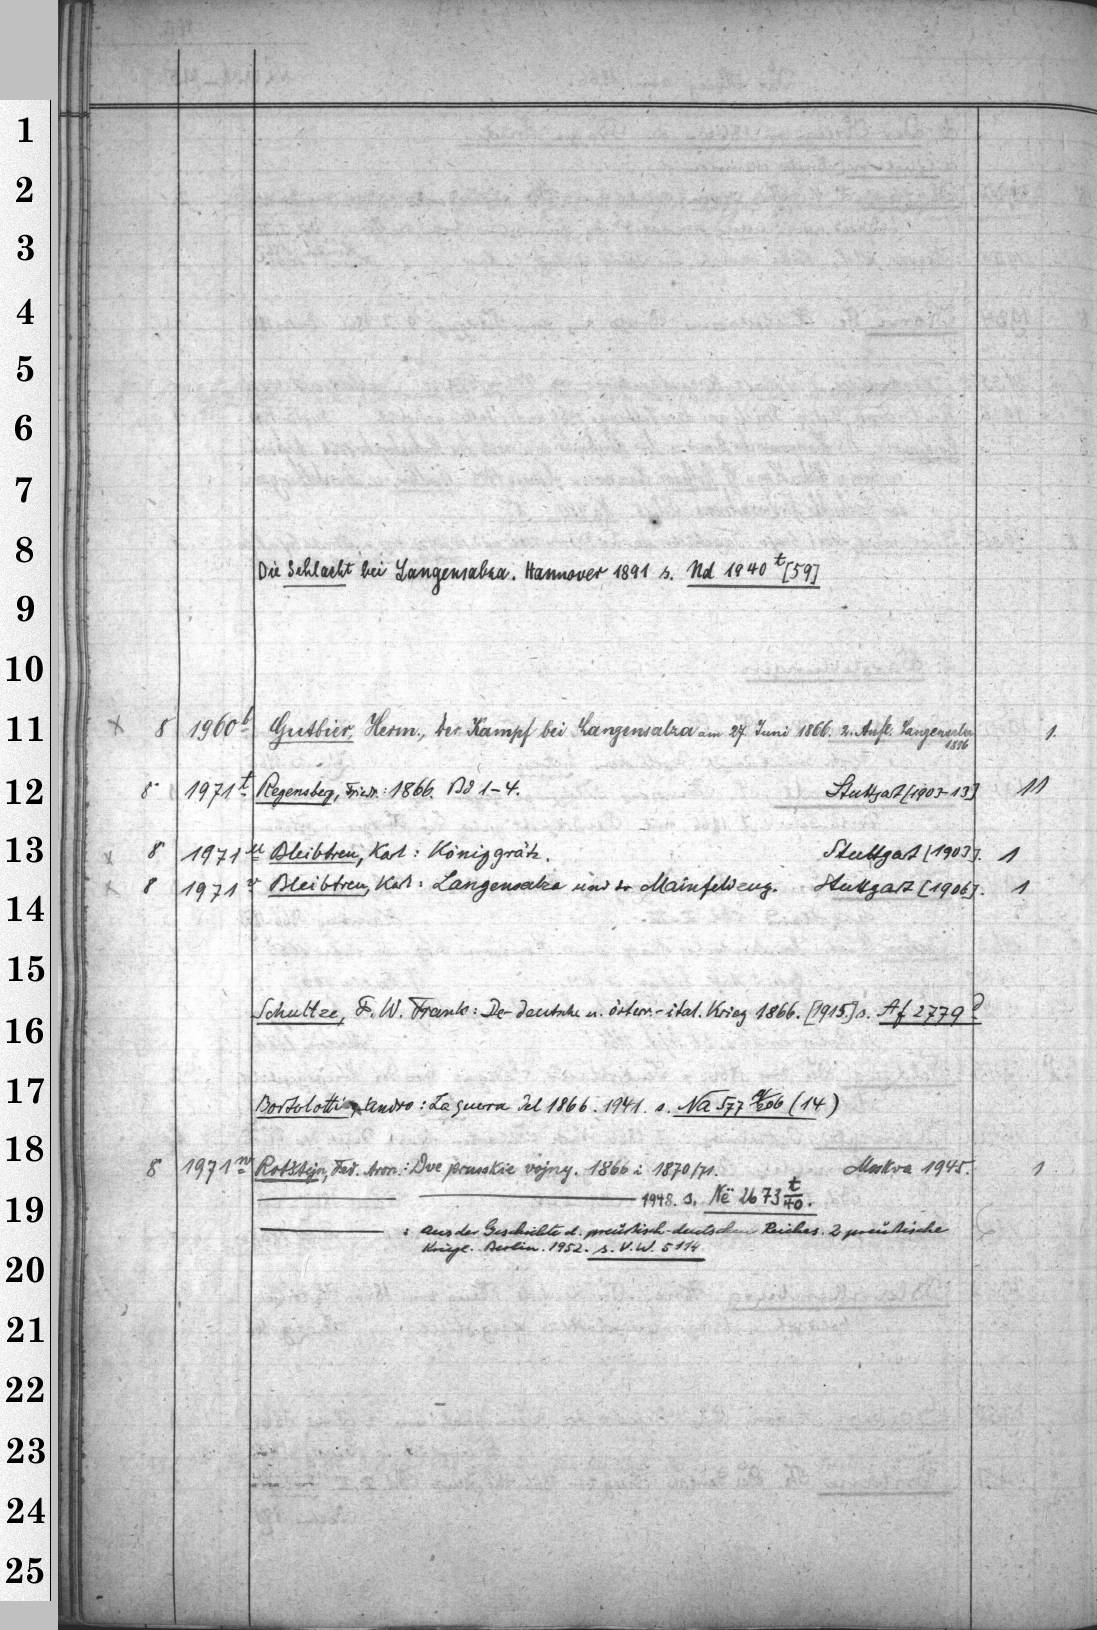 1
2
3
4
5
6
7
8
Die Schlacht bei Langensalza. Hannover 1891 s. Nd 1940 t [59]
9
10
11 × 8 1960 b Gutbier, Herm., Der Kampf bei Langensalza am 27 Juni 1866. 2. Aufl. Langensalza 1.
1886
12 8 1971 t Regensberg, Friedr.: 1866. Bd 1-4. Stuttgart [1903-13] 11
13 × 8 1971 u Bleibtreu, Karl: Königgrätz. Stuttgart [1903]. 1
× 8 1971 v Bleibtreu, Karl: Langensalza und der Mainfeldzug. Stuttgart [1906]. 1
14
15
Schultze, F. W. Frank: Der deutsche u. österr.-ital. Krieg 1866. [1915.] s. Af 2779
16
17 Bortolotti, Sandro: La guerra del 1866. 1941. s. Na 577 (14)
18
8 1971 w Rotštejn, Fed. Aron.: Dve prusskie vojny. 1866 i 1870/71. Moskva 1945. 1
19 1948. s. Në 2673 t/40.
: Aus der Geschichte d. preußisch-deutschen Reiches. 2 preußische
Kriege. Berlin. 1952. s. V.W. 5114
20
21
22
23
24
25